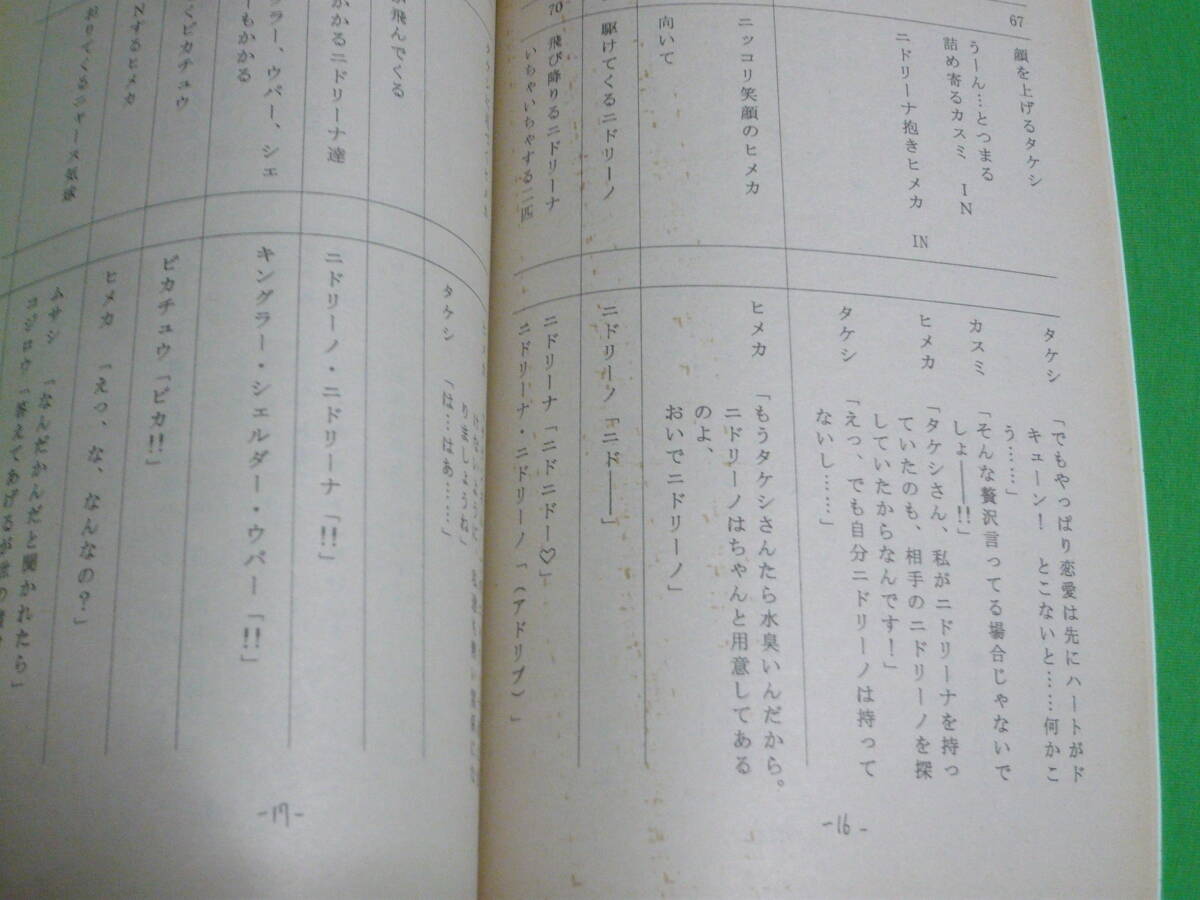 67
顔を上げるタケシ
うーん…とつまる
詰め寄るカスミ　IN
ニドリーナ抱きヒメカ　IN
ニッコリ笑顔のヒメカ
向いて
駆けてくるニドリーノ
70
飛び降りるニドリーナ
いちゃいちゃする二匹
タケシ
「でもやっぱり恋愛は先にハートがド
キューン！　とこないと……何かこ
う……」
カスミ
「そんな贅沢言ってる場合じゃないで
しょ――!!」
ヒメカ
「タケシさん、私がニドリーナを持っ
ていたのも、相手のニドリーノを探
していたからなんです！」
タケシ
「えっ、でも自分ニドリーノは持って
ないし……」
ヒメカ
「もうタケシさんたら水臭いんだから。
ニドリーノはちゃんと用意してある
のよ、
おいでニドリーノ」
ニドリーノ「ニド――」
ニドリーナ「ニドニドー♡」
ニドリーナ・ニドリーノ「（アドリブ）」
-16-
飛んでくる
かかるニドリーナ達
ラー、ウパー、シェ
ーもかかる
ピカチュウ
Nするヒメカ
おりてくるニャース気球
りましょうね」
タケシ
「は…はあ……」
ニドリーノ・ニドリーナ「!!」
キングラー・シェルダー・ウパー「!!」
ピカチュウ「ピカ!!」
ヒメカ
「えっ、な、なんなの？」
ムサシ
「なんだかんだと聞かれたら」
コジロウ「答えてあげるが世の
-17-